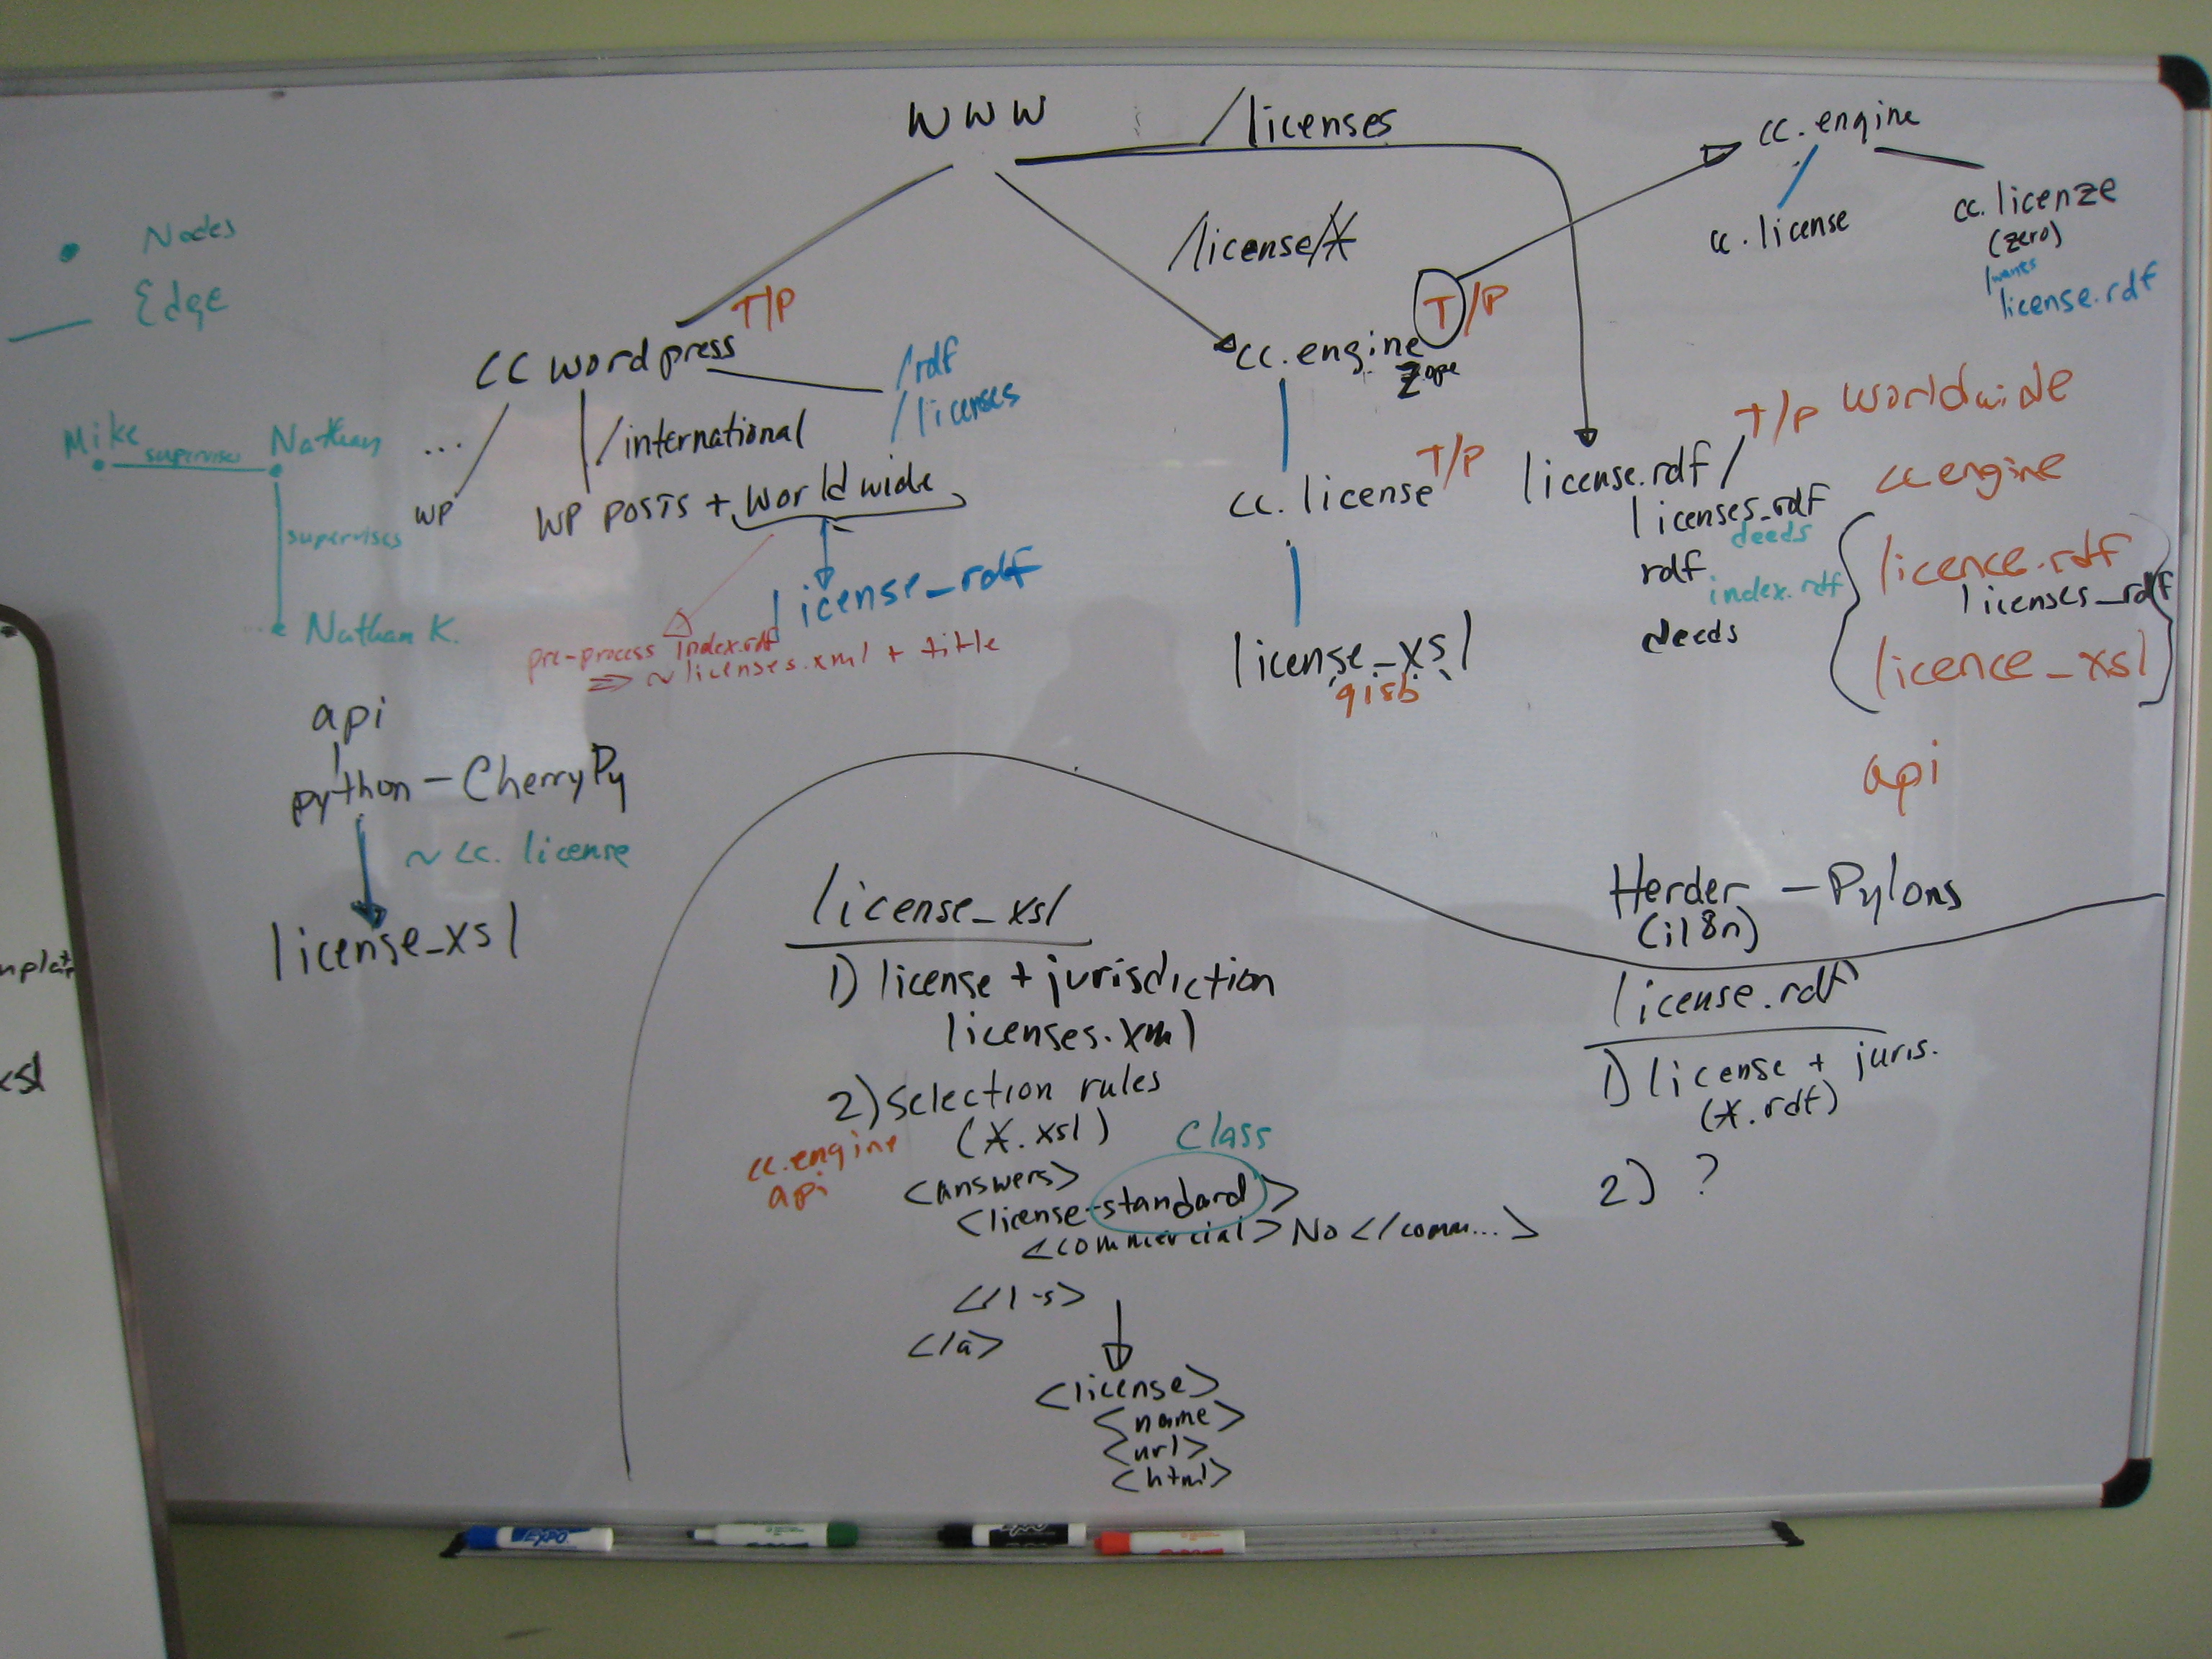 WWW
/licenses
/license/*
cc.engine
cc.license
cc.licenze
(zero)
wants
license.rdf
Nodes
Edge
Mike
supervises
Nathan
supervises
Nathan K.
T/P
CC wordpress
/rdf
/licenses
...
/international
WP
WP POSTS + worldwide
license_rdf
pre-process index.rdf
⇒ ~licenses.xml + title
T/P
cc.engine
Zope
T/P
cc.license
license_xsl
T/P
license.rdf/
licenses_rdf
deeds
rdf
index.rdf
deeds
worldwide
cc engine
licence.rdf
licenses_rdf
licence_xsl
api
api
python - CherryPy
~ cc.license
license_xsl
Herder - Pylons
(i18n)
license_xsl
1) license + jurisdiction
licenses.xml
2) selection rules
(*.xsl)
cc.engine
api
class
<answers>
<license-standard>
<commercial>No</comm...>
</l-s>
</a>
<license>
<name>
<url>
<html>
license.rdf
1) license + juris.
(*.rdf)
2) ?
xsl
EXPO